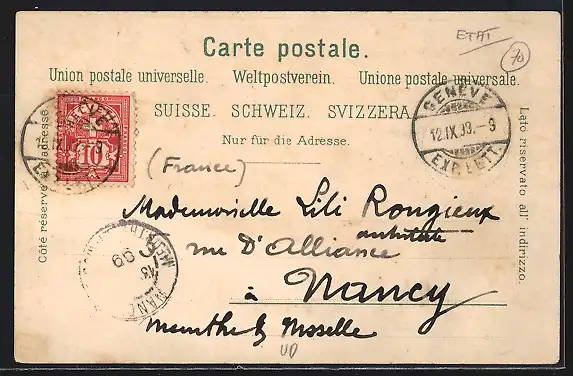 ETAT
70
Carte postale.
Union postale universelle. Weltpostverein. Unione postale universale.
SUISSE. SCHWEIZ. SVIZZERA
Nur für die Adresse.
Côté réservé à l'adresse
Lato riservato all' indirizzo.
GENÈVE
12.IX.99.–9
EXP. LETT.
10
(France)
Mademoiselle Lili Rougieux
rue D'Alliance
à Nancy
Meurthe & Moselle
NANCY
13
99